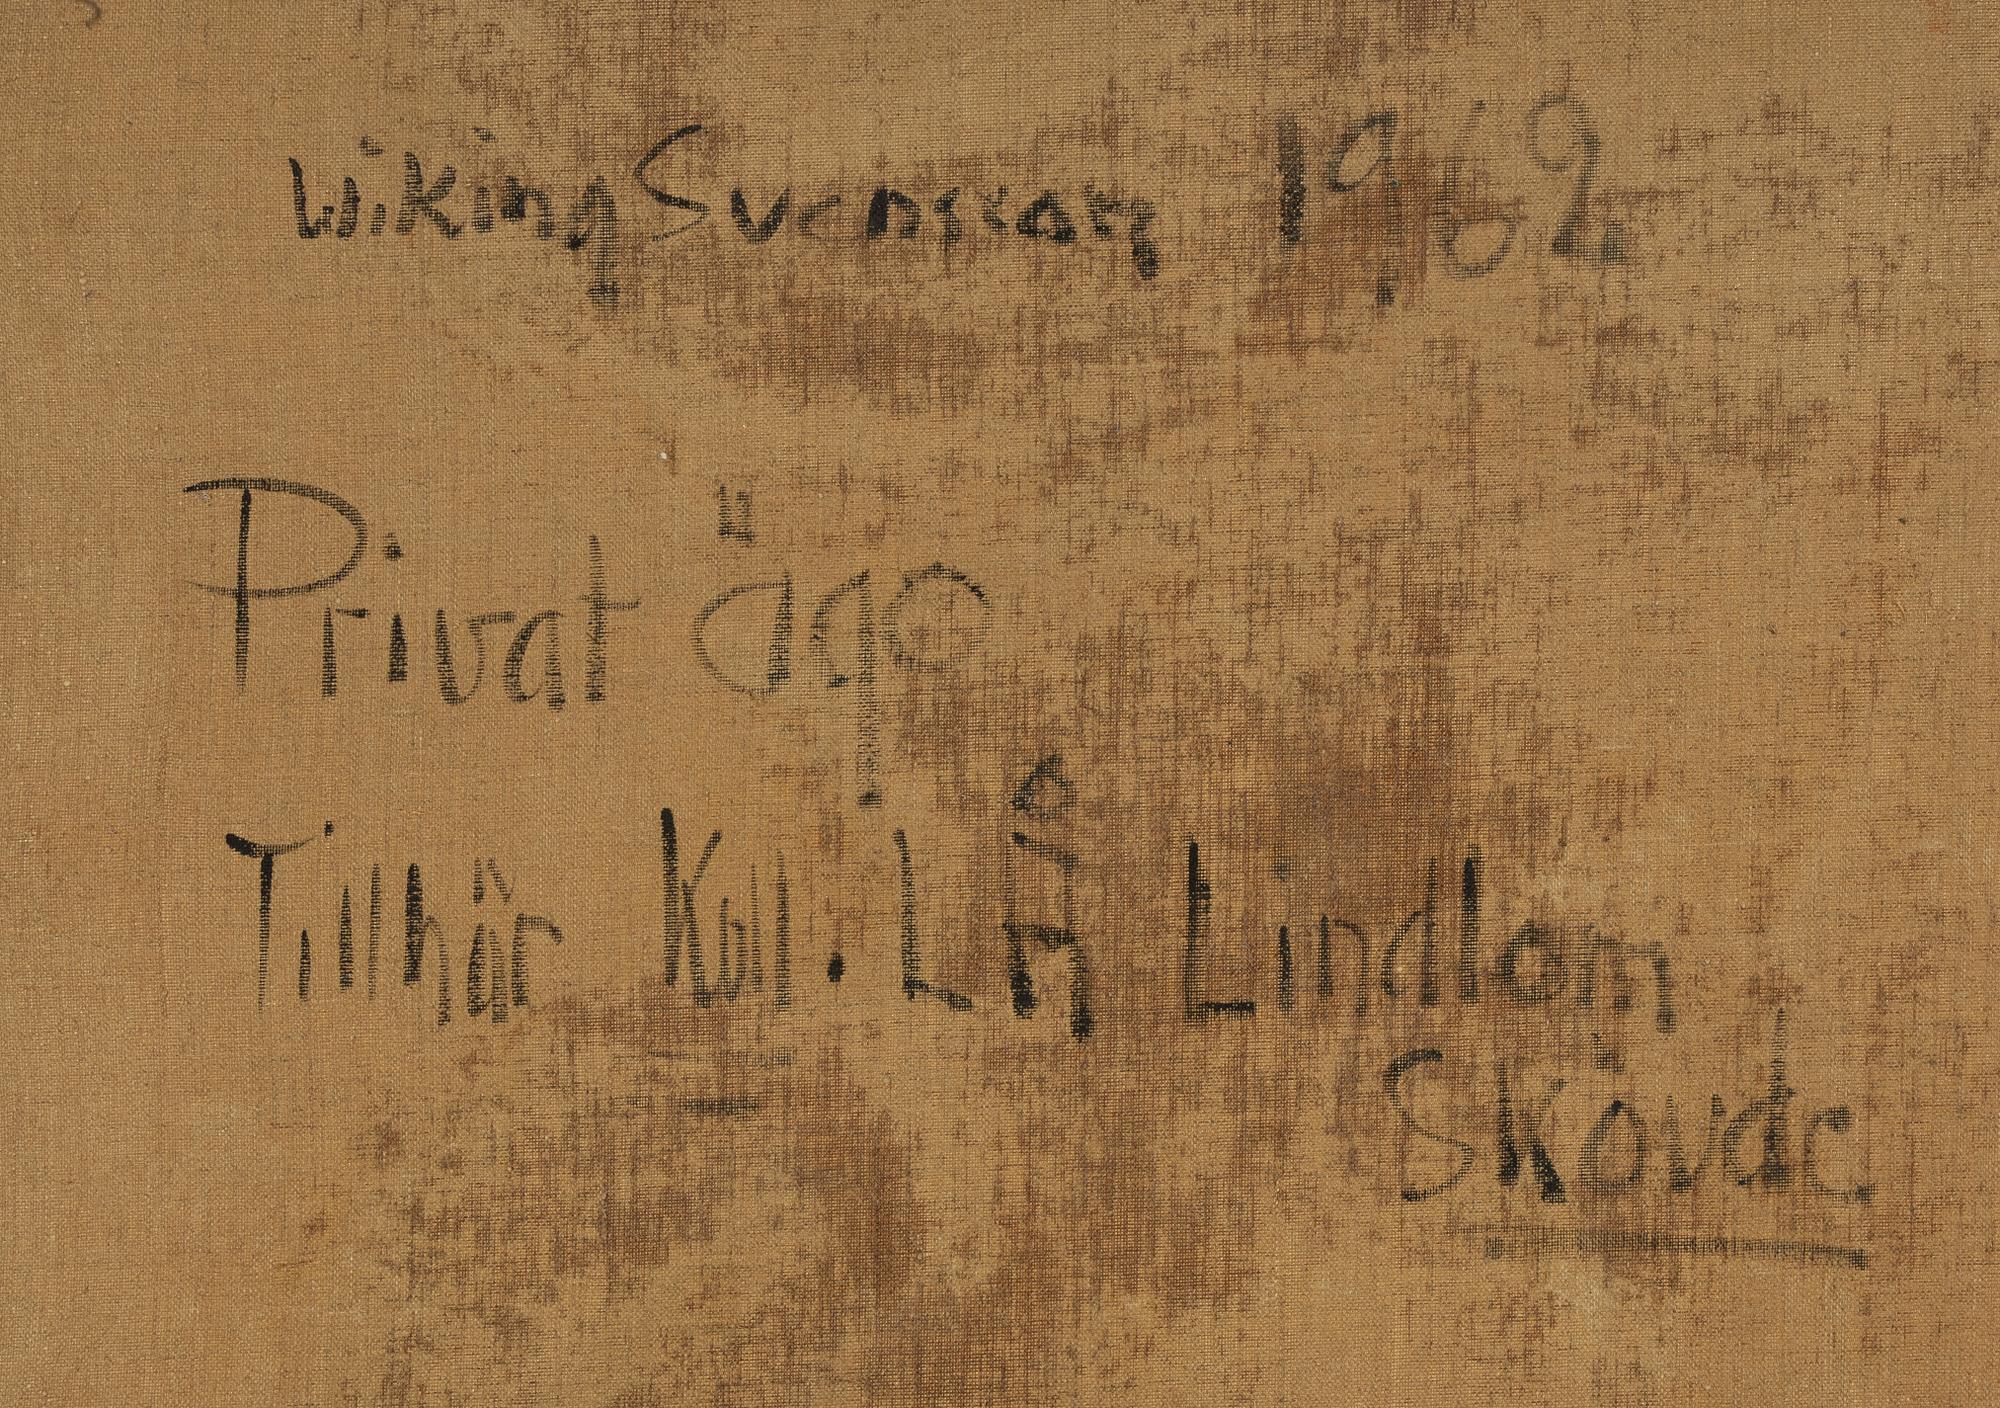 Wiking Svensson 1962
Privat ägo
Tillhör Koll. Lindlom
Skövde